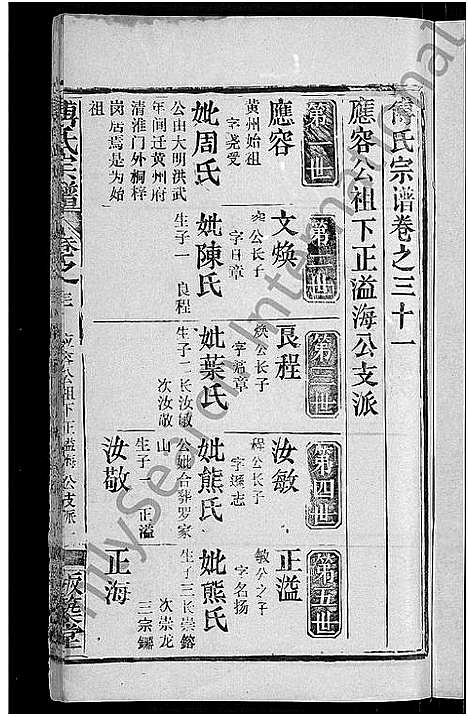 傅氏宗谱卷之三十一
應容公祖下正溢海公支派
第一世
應容
黄州始祖
字尧受
妣周氏
公由大明洪武
年间迁黄州府
清淮门外桐梓
岗居焉是为始
祖
第二世
文焕
容公长子
字日章
妣陳氏
生子一 良程
第三世
良程
焕公长子
妣葉氏
生子二 长汝敏
次汝敬
第四世
汝敏
程公长子
妣熊氏
公妣合葬罗家
山
生子一 正溢
汝敬
第五世
正溢
敏公之子
字名扬
妣熊氏
生子三 长崇鎔
次崇龙
三宗鏞
正海
傅氏宗譜
卷之三
應容公祖下正溢海公支派
FamilySearch International